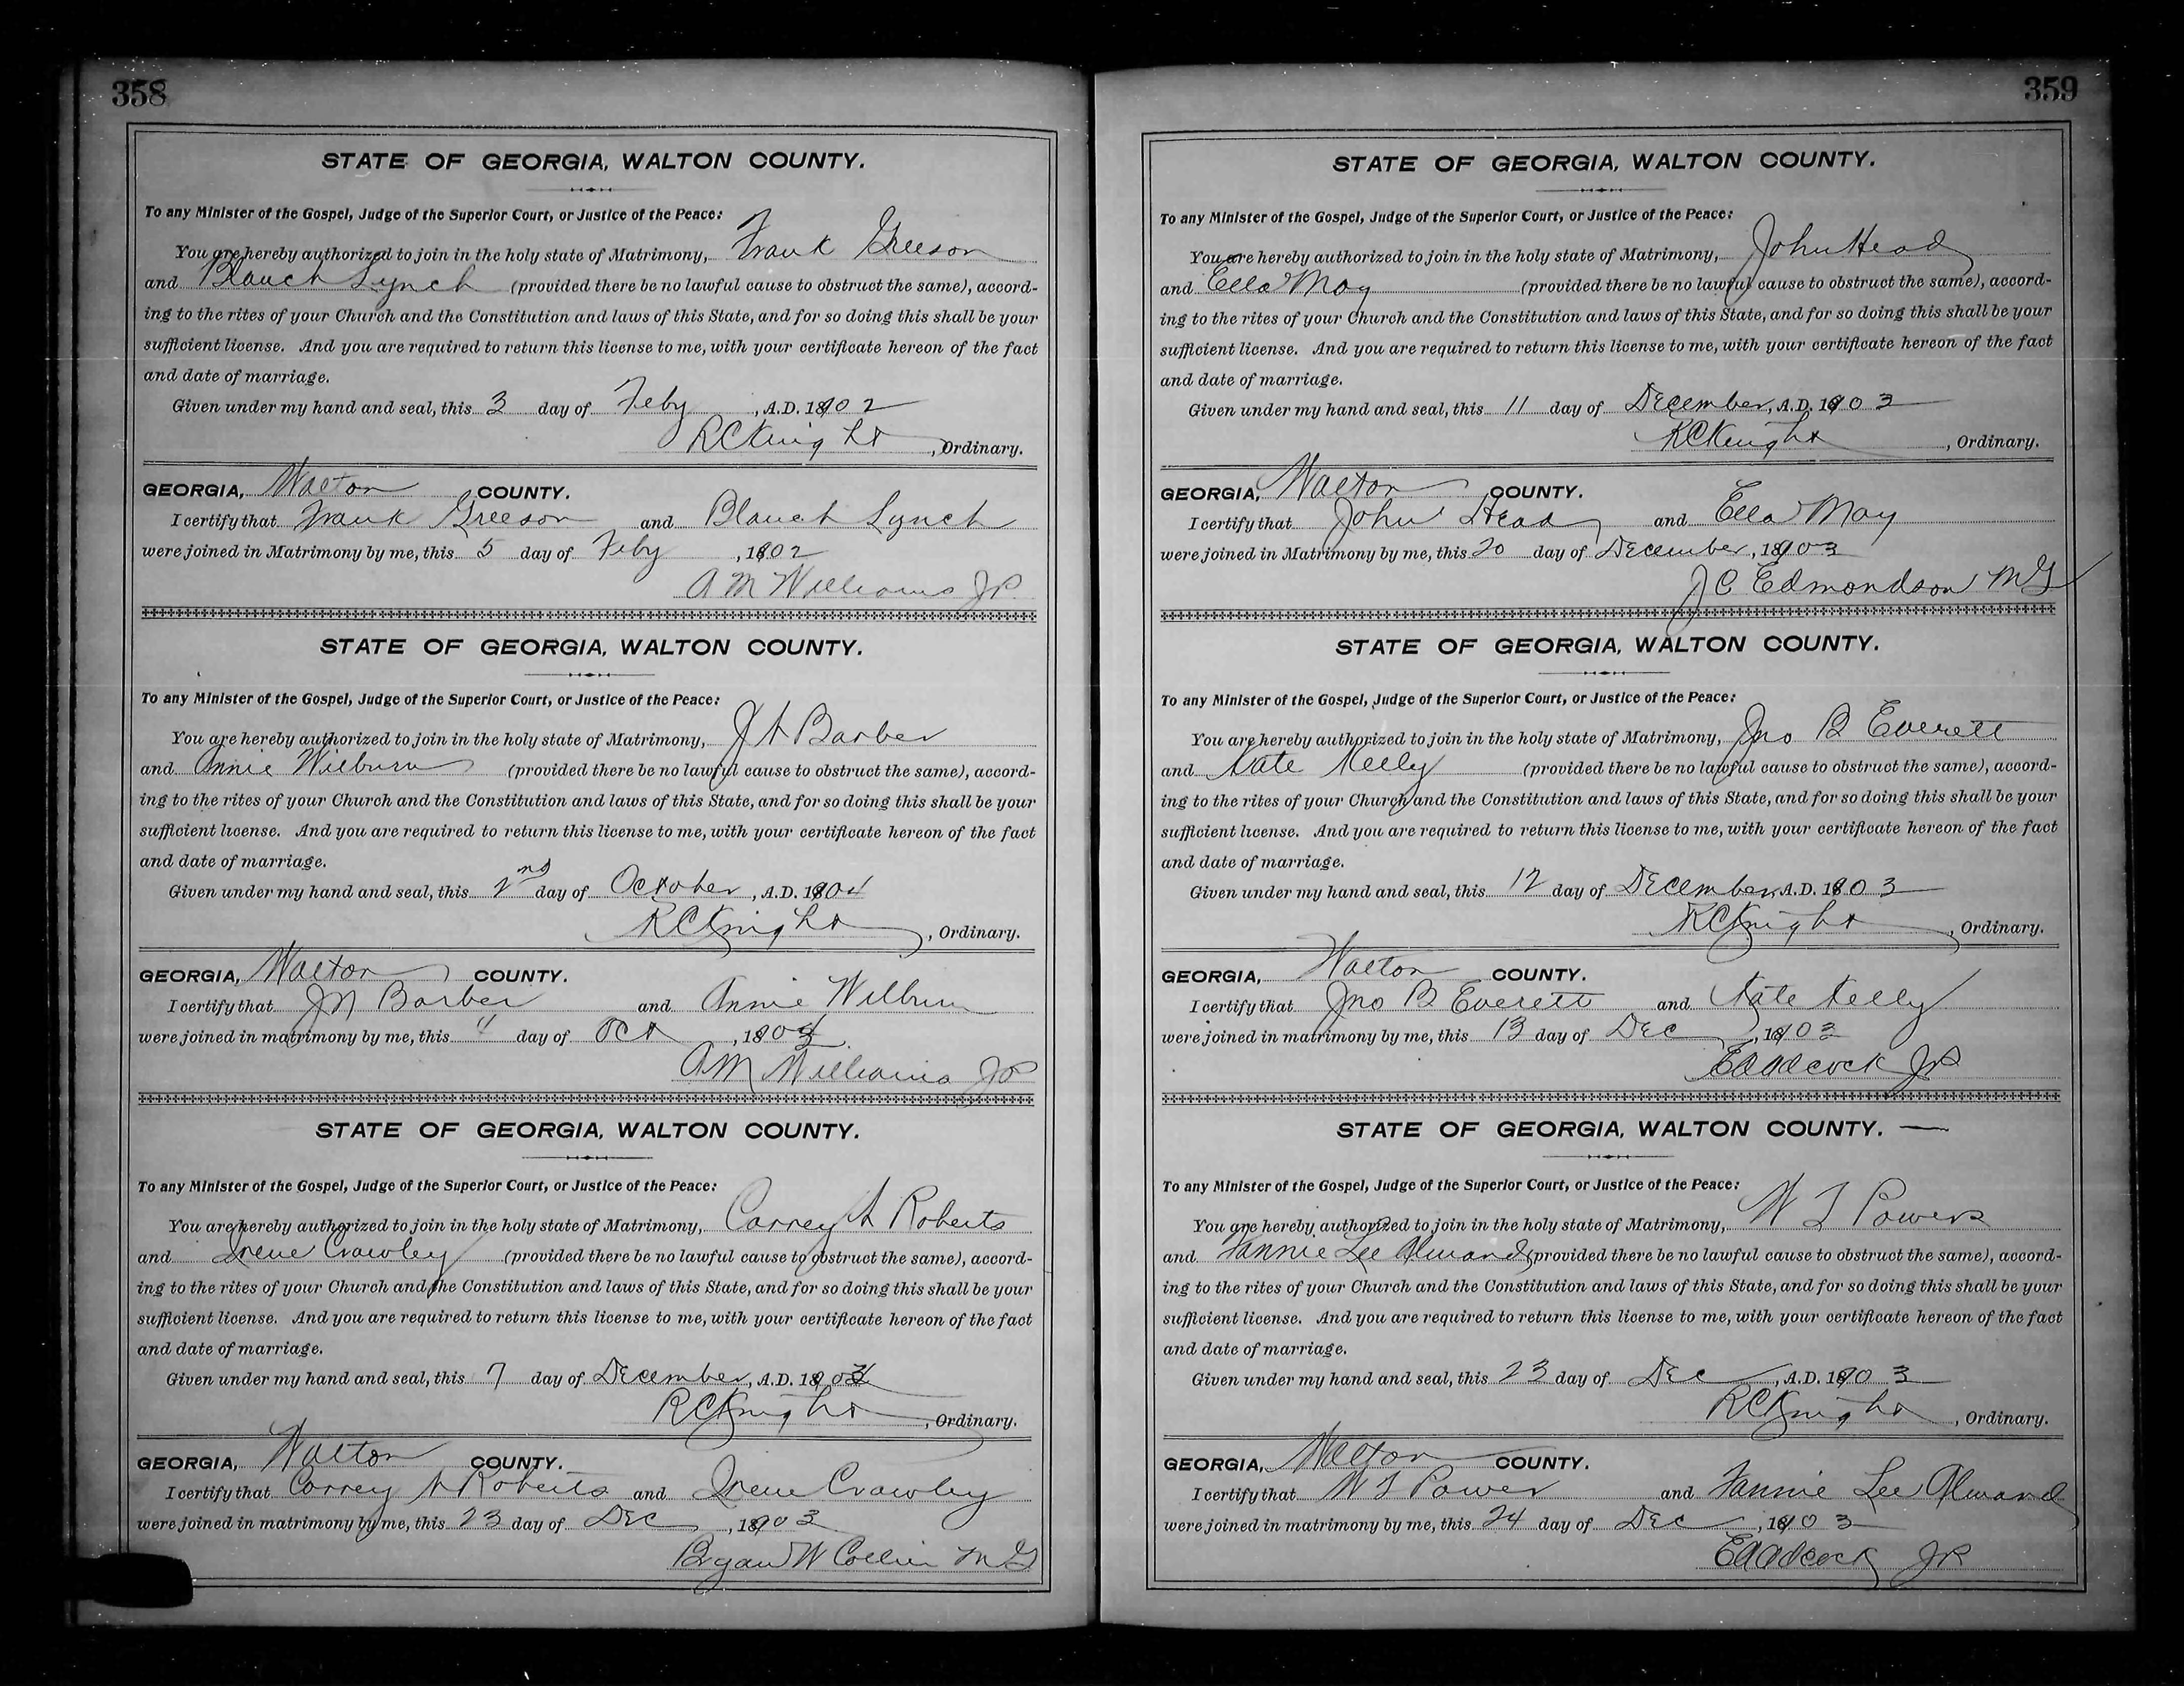 358
STATE OF GEORGIA, WALTON COUNTY.
To any Minister of the Gospel, Judge of the Superior Court, or Justice of the Peace:
You are hereby authorized to join in the holy state of Matrimony, Frank Greeson
and Blanch Lynch (provided there be no lawful cause to obstruct the same), accord-
ing to the rites of your Church and the Constitution and laws of this State, and for so doing this shall be your
sufficient license. And you are required to return this license to me, with your certificate hereon of the fact
and date of marriage.
Given under my hand and seal, this 3 day of Feby, A.D. 1902
RCKnight, Ordinary.
GEORGIA, Walton COUNTY.
I certify that Frank Greeson and Blanch Lynch
were joined in Matrimony by me, this 5 day of Feby, 1902
A M Williams JP
STATE OF GEORGIA, WALTON COUNTY.
To any Minister of the Gospel, Judge of the Superior Court, or Justice of the Peace:
You are hereby authorized to join in the holy state of Matrimony, Barber
and Annie Wilburn (provided there be no lawful cause to obstruct the same), accord-
ing to the rites of your Church and the Constitution and laws of this State, and for so doing this shall be your
sufficient license. And you are required to return this license to me, with your certificate hereon of the fact
and date of marriage.
Given under my hand and seal, this 2nd day of October, A.D. 1904
RCKnight, Ordinary.
GEORGIA, Walton COUNTY.
I certify that Barber and Annie Wilburn
were joined in matrimony by me, this day of Oct, 1904
AM Williams JP
STATE OF GEORGIA, WALTON COUNTY.
To any Minister of the Gospel, Judge of the Superior Court, or Justice of the Peace:
You are hereby authorized to join in the holy state of Matrimony, Correy A Roberts
and Irene Crawley (provided there be no lawful cause to obstruct the same), accord-
ing to the rites of your Church and the Constitution and laws of this State, and for so doing this shall be your
sufficient license. And you are required to return this license to me, with your certificate hereon of the fact
and date of marriage.
Given under my hand and seal, this 7 day of December, A.D.
RCKnight, Ordinary.
GEORGIA, Walton COUNTY.
I certify that Correy A Roberts and Irene Crawley
were joined in matrimony by me, this 23 day of Dec, 1903
Bryan W Collier MG
359
STATE OF GEORGIA, WALTON COUNTY.
To any Minister of the Gospel, Judge of the Superior Court, or Justice of the Peace:
You are hereby authorized to join in the holy state of Matrimony, John Head
and Ella May (provided there be no lawful cause to obstruct the same), accord-
ing to the rites of your Church and the Constitution and laws of this State, and for so doing this shall be your
sufficient license. And you are required to return this license to me, with your certificate hereon of the fact
and date of marriage.
Given under my hand and seal, this 11 day of December, A.D. 1903
RCKnight, Ordinary.
GEORGIA, Walton COUNTY.
I certify that John Head and Ella May
were joined in Matrimony by me, this 20 day of December, 1903
J C Edmondson MG
STATE OF GEORGIA, WALTON COUNTY.
To any Minister of the Gospel, Judge of the Superior Court, or Justice of the Peace:
You are hereby authorized to join in the holy state of Matrimony, Jno B Everett
and Kate Kelly (provided there be no lawful cause to obstruct the same), accord-
ing to the rites of your Church and the Constitution and laws of this State, and for so doing this shall be your
sufficient license. And you are required to return this license to me, with your certificate hereon of the fact
and date of marriage.
Given under my hand and seal, this 12 day of December, A.D. 1903
RCKnight, Ordinary.
GEORGIA, Walton COUNTY.
I certify that Jno B Everett and Kate Kelly
were joined in matrimony by me, this 13 day of Dec, 1903
EA Adcock JP
STATE OF GEORGIA, WALTON COUNTY.
To any Minister of the Gospel, Judge of the Superior Court, or Justice of the Peace:
You are hereby authorized to join in the holy state of Matrimony, W T Powers
and Fannie Lee Almand (provided there be no lawful cause to obstruct the same), accord-
ing to the rites of your Church and the Constitution and laws of this State, and for so doing this shall be your
sufficient license. And you are required to return this license to me, with your certificate hereon of the fact
and date of marriage.
Given under my hand and seal, this 23 day of Dec, A.D. 1903
RCKnight, Ordinary.
GEORGIA, Walton COUNTY.
I certify that W T Power and Fannie Lee Almand
were joined in matrimony by me, this 24 day of Dec, 1903
EA Adcock JP